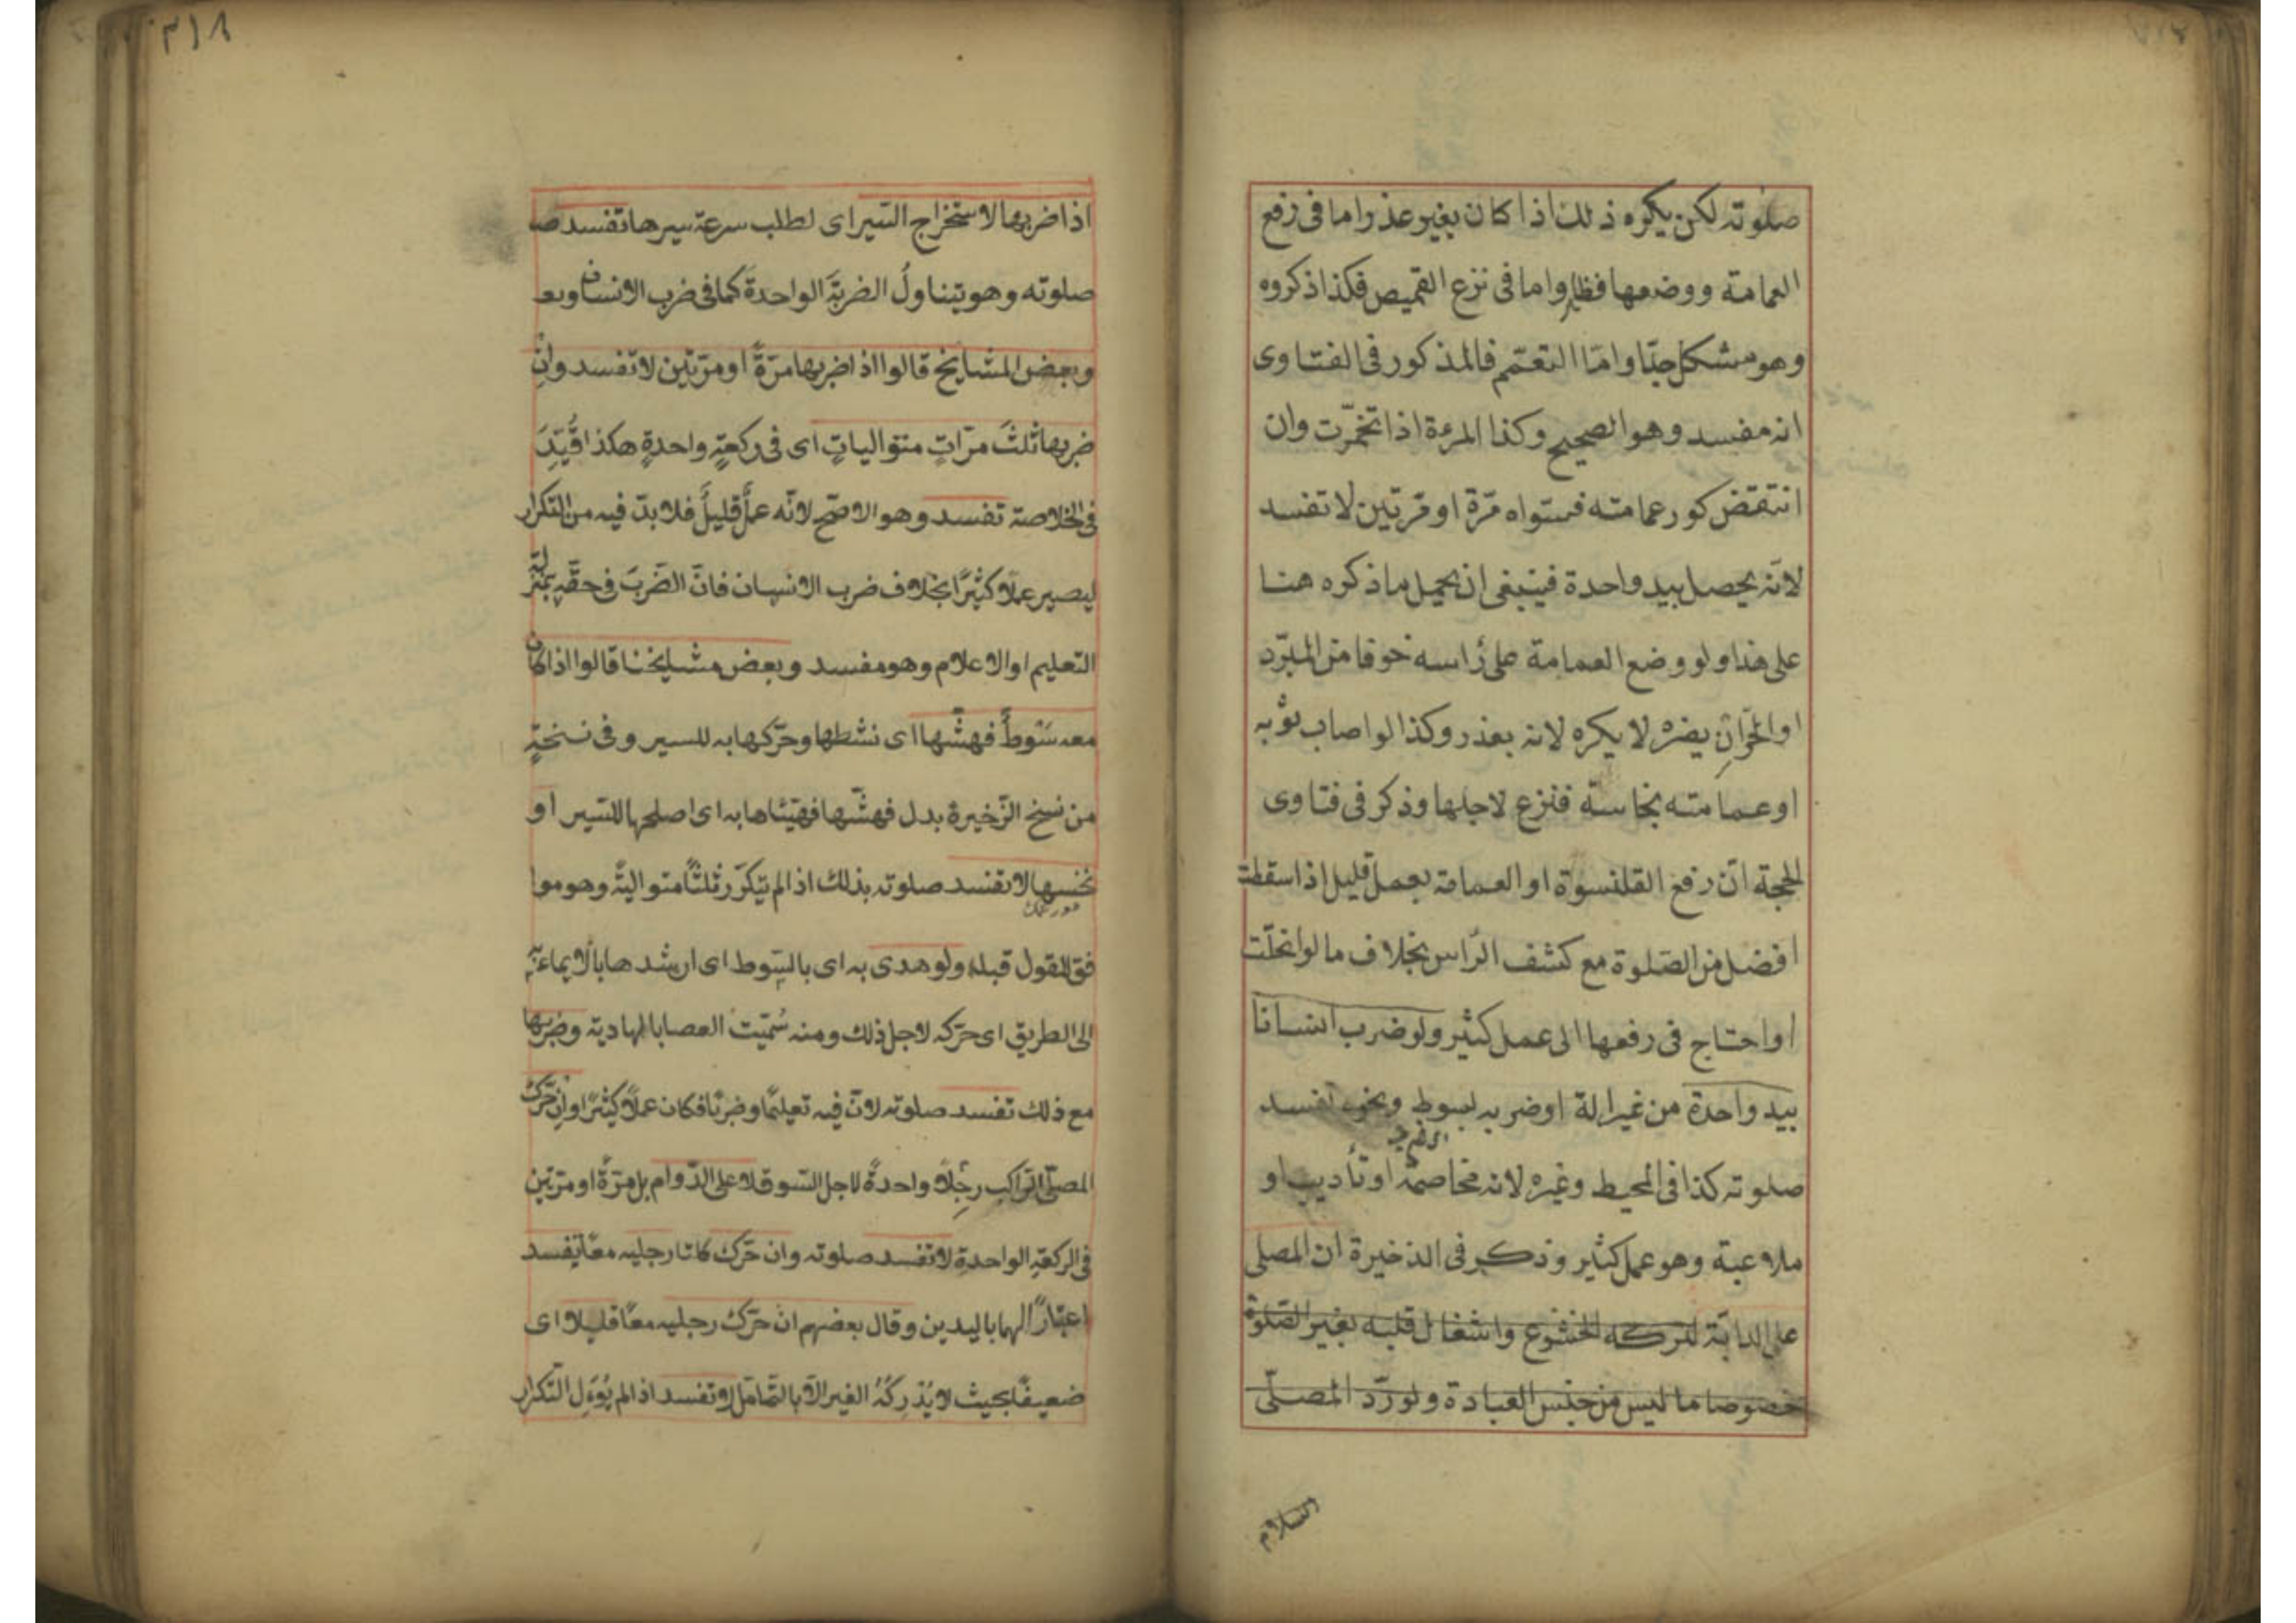 صلوته لكن يكره ذلك اذا كان بغير عذر واما فى رفع
العمامة ووضعها فظاهر واما فى نزع القميص فكذا ذكروه
وهو مشكل جدّا وامّا التعمّم فالمذكور فى الفتاوى
انه مفسد وهو الصحيح وكذا المرءة اذا تخمّرت وان
انتقض كور عمامته فسوّاه مرّة او مرّتين لا تفسد
لانّه يحصل بيد واحدة فينبغى ان يحمل ما ذكره هنا
على هذا ولو وضع العمامة على رأسه خوفا من البرد
او الحرّ ان يضرّه لا يكره لانه بعذر وكذا لو اصاب ثوبه
او عمامته نجاسة فنزع لاجلها وذكر فى فتاوى
الحجة انّ رفع القلنسوة او العمامة بعمل قليل اذا سقطت
افضل من الصّلوة مع كشف الرّاس بخلاف ما لو انحلّت
او احتاج فى رفعها الى عمل كثير ولو ضرب انسانا
بيد واحدة من غير الة او ضربه بسوط ونحوه تفسد
صلوته كذا فى المحيط وغيره لانه مخاصمة او تأديب او
ملاعبة وهو عمل كثير وذكر فى الذخيرة ان المصلى
على الدابّة لتركه الخشوع واشغال قلبه بغير الصّلوة
خصوصا ما ليس من جنس العبادة ولو ردّ المصلّى
السلام
٣١٨
اذا ضربها لاستخراج السّير اى لطلب سرعة سيرها تفسد صـ
صلوته وهو يتناولُ الضربةَ الواحدةَ كما فى ضرب الانسان وبعـ
وبعض المشايخ قالوا اذا ضربها مرّةً او مرّتين لا تفسد وانِ
ضربها ثلثَ مرّاتٍ متوالياتٍ اى فى ركعةٍ واحدةٍ هكذا قُيّدَ
فى الخلاصة تفسد وهو الاصحّ لانّه عملٌ قليلٌ فلا بدّ فيه من التكرار
ليصير عملًا كثيرًا بخلاف ضرب الانسان فانّ الضّربَ فى حقّهِ بمنزلة
التعليم او الاعلام وهو مفسد وبعض مشايخنا قالوا اذا كان
معه سَوطٌ فهشّها اى نشطها وحرّكها به للسير وفى نسخةٍ
من نسخ الذّخيرة بدل فهشّها فهيّئاها به اى اصلحها للسّير او
نخسها لا تفسد صلوته بذلك اذا لم يتكرّر ثلثًا متواليةً وهو موا
فق للقول قبله ولو هدى به اى بالسّوط اى ارشدها بالايماء به
الى الطريق اى حرّكه لاجل ذلك ومنه سُمّيت العصا بالهادية وضربها
مع ذلك تفسد صلوته لانّ فيه تعليمًا وضربًا فكان عملًا كثيرًا وان حرّك
المصلّى الرّاكب رجلًا واحدةً لاجل السّوق لا على الدّوام بل مرّةً او مرّتين
فى الركعةِ الواحدةِ لا تفسد صلوته وان حرّك كلتا رجليه معًا يفسد
اعتبارًا لهما باليدين وقال بعضهم ان حرّك رجليه معًا قليلا اى
ضعيفًا بحيث لا يُدْرِكُهُ الغير الّا بالتّامّل لا تفسد اذا لم يُوءَلِ التّكرار